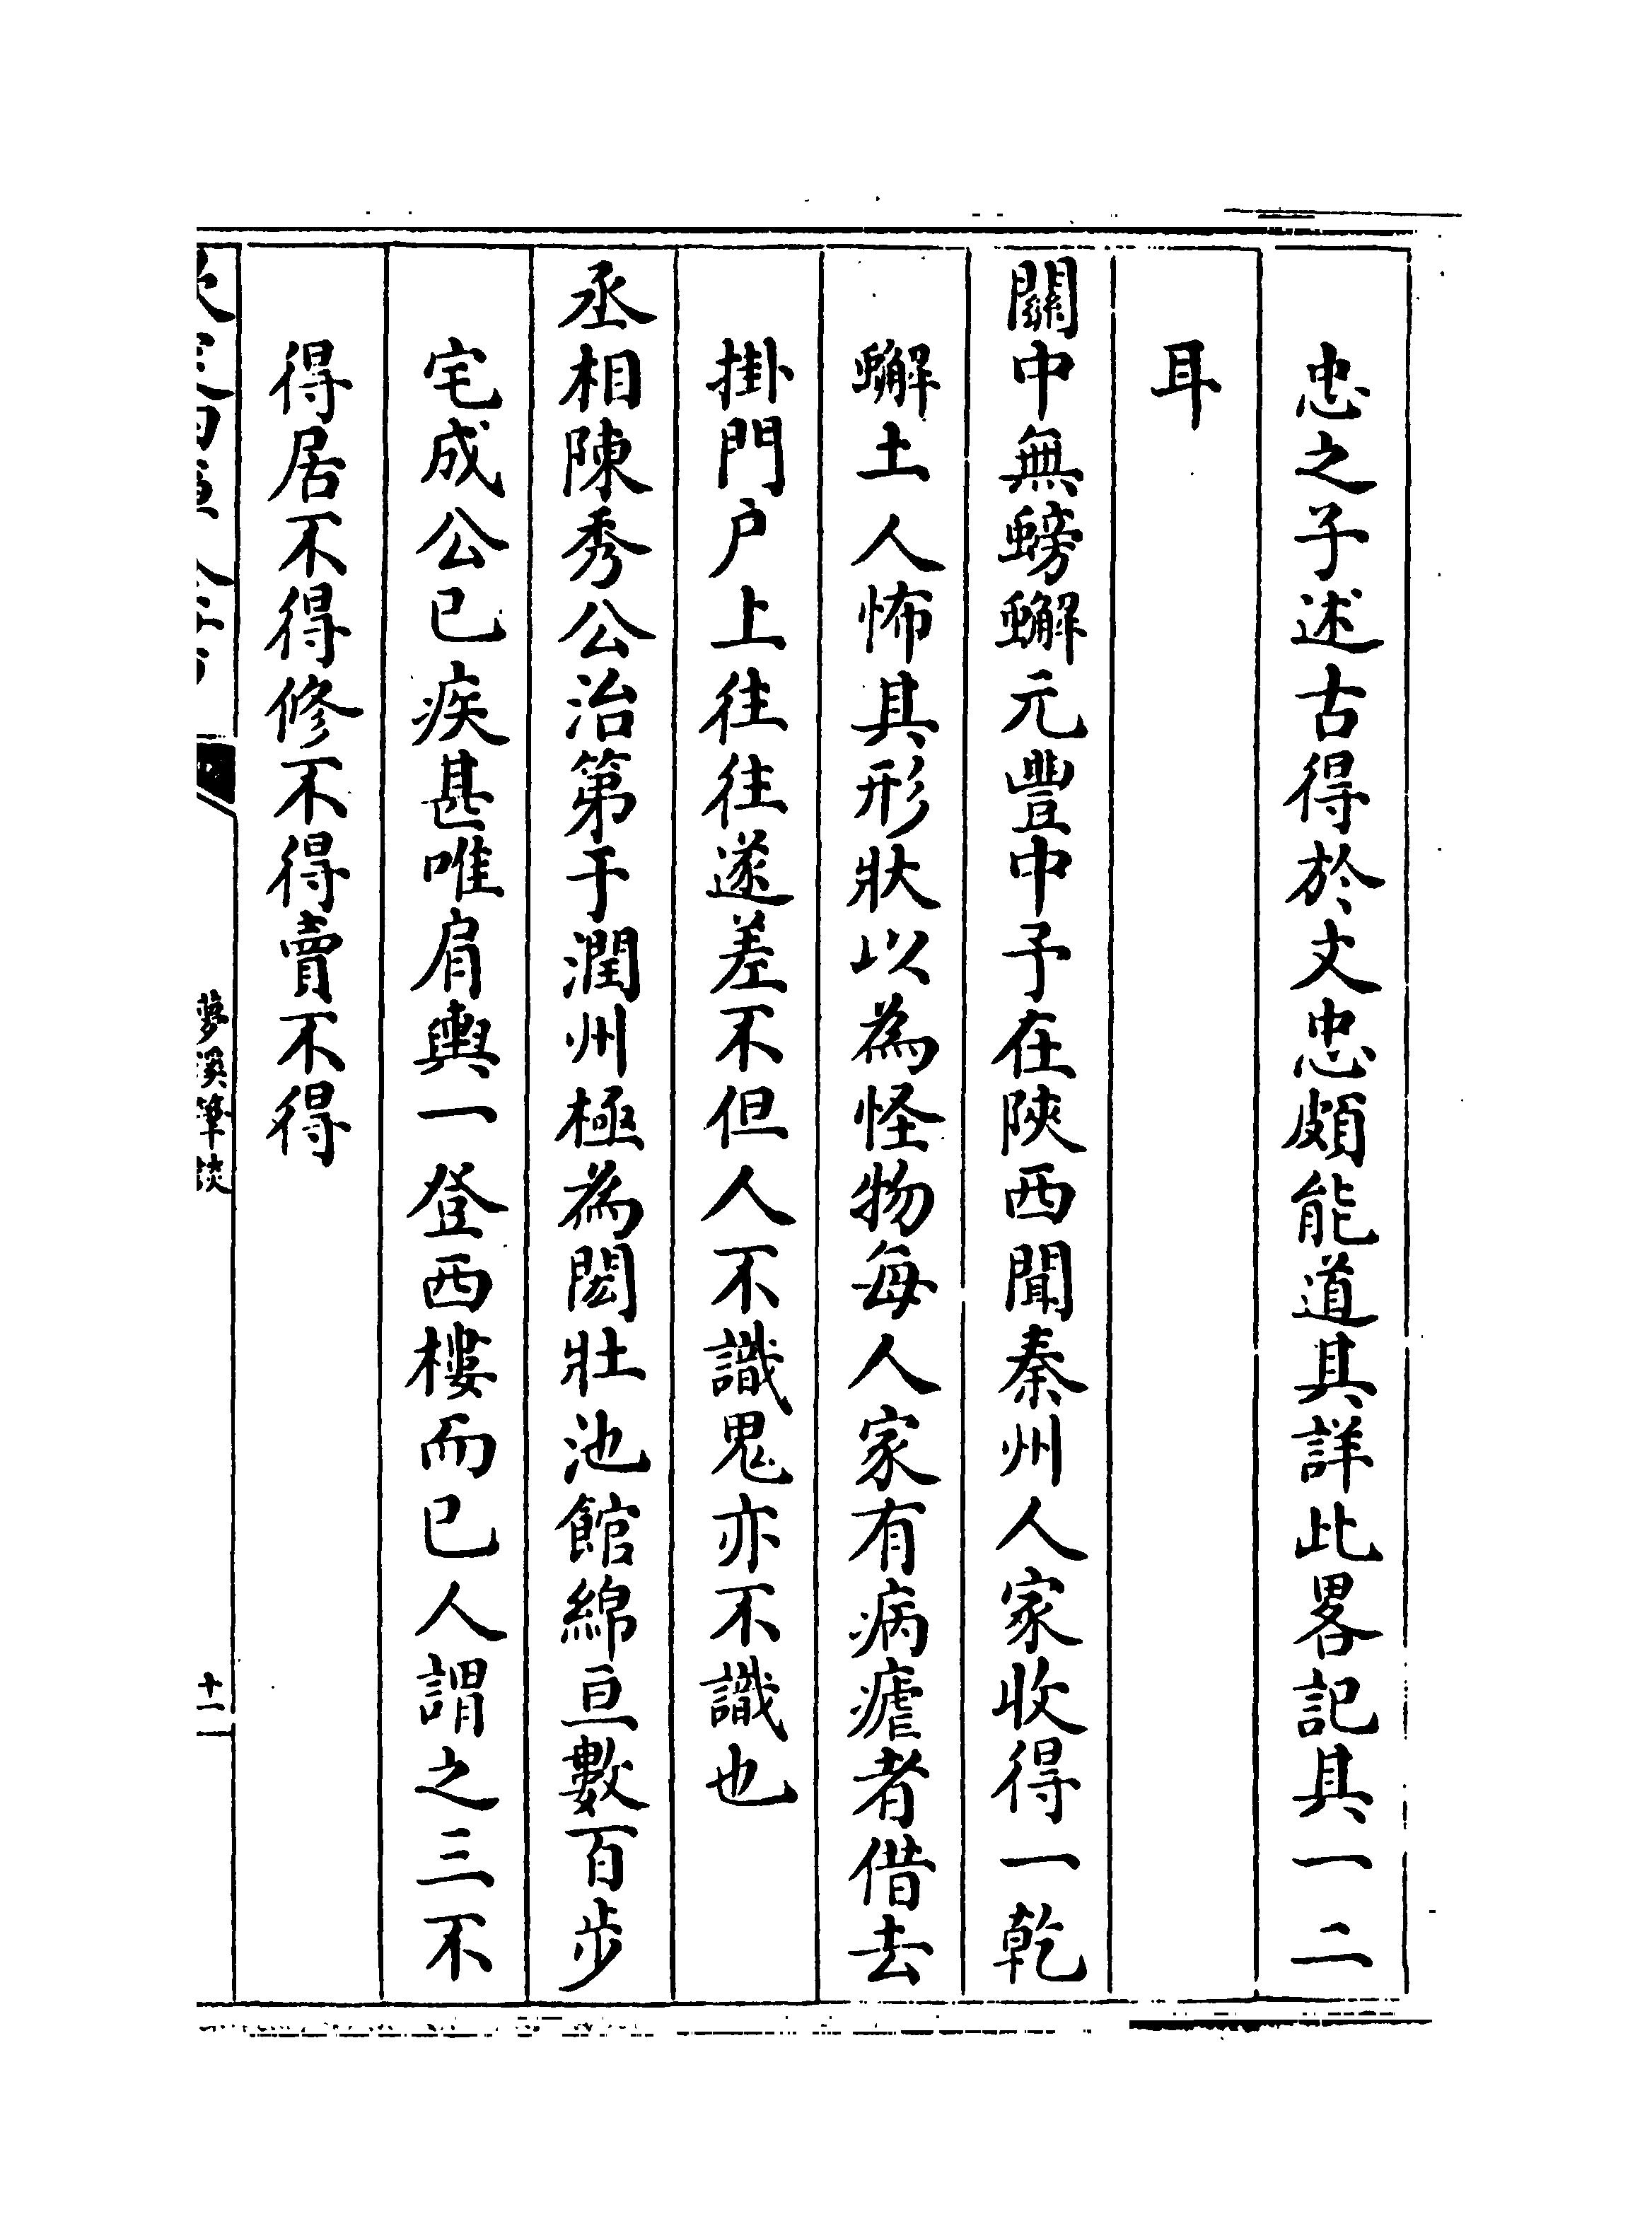 忠之子述古得於文忠頗能道其詳此畧記其一二
耳
關中無螃蠏元豐中予在陜西聞秦州人家收得一乾
蠏土人怖其形狀以為怪物每人家有病瘧者借去
掛門户上往往遂差不但人不識鬼亦不識也
丞相陳秀公治第于潤州極為閎壯池館綿亘數百步
宅成公已疾甚唯肩輿一登西樓而已人謂之三不
得居不得修不得賣不得
夢溪筆談
十二